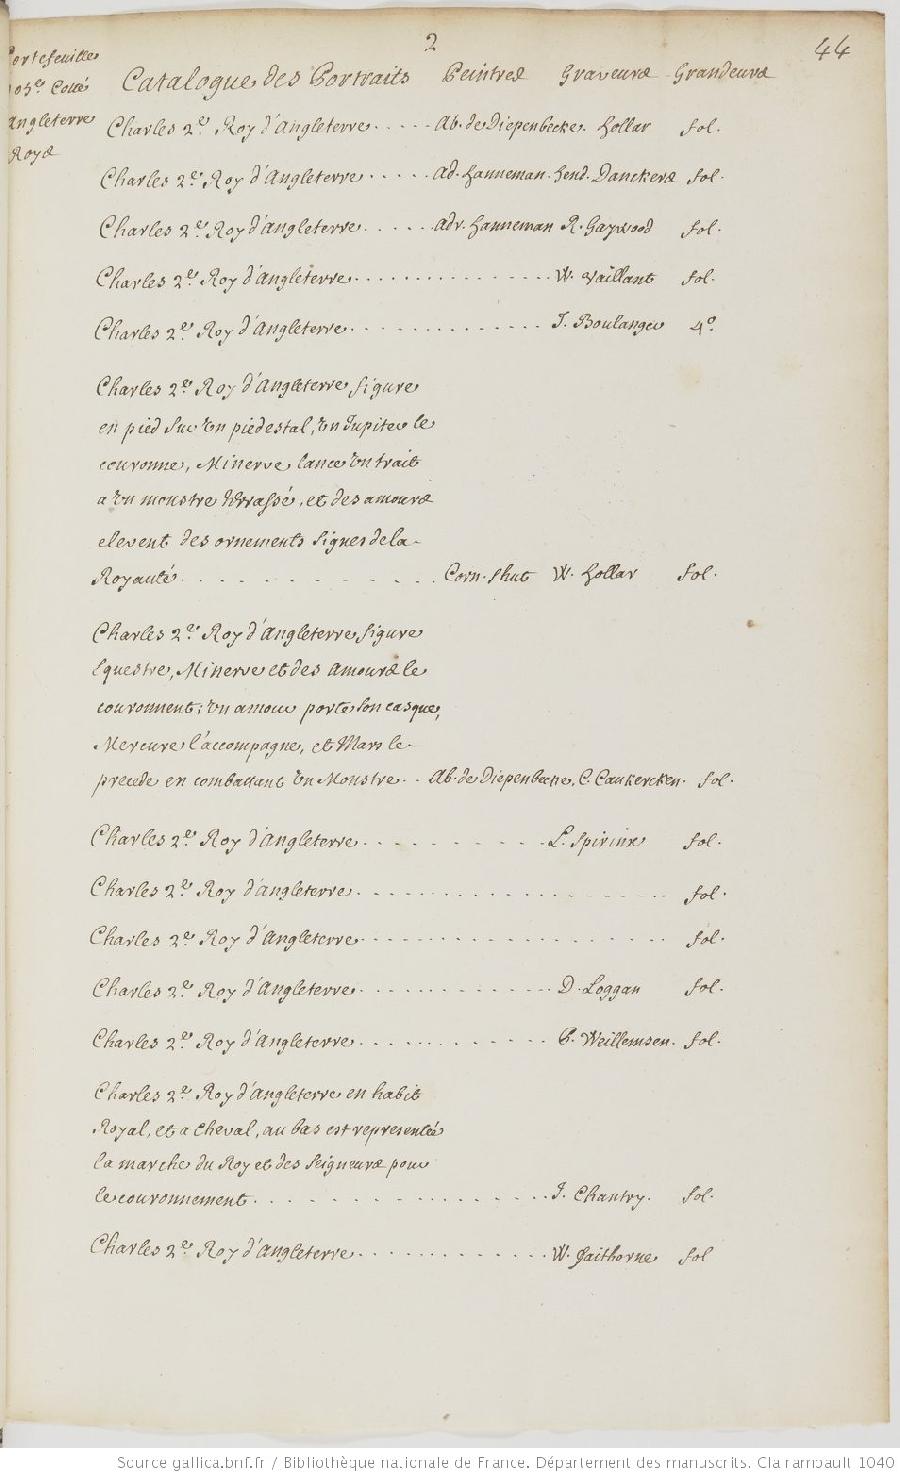 2
44
Portefeuille
105e. Cotté
Angleterre
Roys
Catalogue des Portraits Peintres Graveurs Grandeurs
Charles 2e. Roy d'Angleterre..... Ab. de Diepenbecke. Hollar fol.
Charles 2e. Roy d'Angleterre..... Ad. Hanneman. Hend. Danckers fol.
Charles 2e. Roy d'Angleterre..... Adr. Hanneman R. Gaywood fol.
Charles 2e. Roy d'Angleterre............... W. Vaillant fol.
Charles 2e. Roy d'Angleterre............... J. Boulanger 4o.
Charles 2e. Roy d'Angleterre figure
en pied sur un piedestal, un Jupiter le
couronne, Minerve lance un trait
a un monstre terrassé, et des amours
elevent des ornements signes de la
Royauté............ Corn. Shut W. Hollar fol.
Charles 2e. Roy d'Angleterre figure
Equestre, Minerve et des Amours le
couronnent; un amour porte son casque,
Mercure l'accompagne, et Mars le
precede en combattant un Monstre.. Ab. de Diepenbecke. C. Caukercken. fol.
Charles 2e. Roy d'Angleterre.......... L. Spirinx fol.
Charles 2e. Roy d'Angleterre................... fol.
Charles 2e. Roy d'Angleterre................... fol.
Charles 2e. Roy d'Angleterre............... D. Loggan fol.
Charles 2e. Roy d'Angleterre............... P. Willemsen. fol.
Charles 2e. Roy d'Angleterre en habit
Royal, et a cheval, au bas est representée
la marche du Roy et des Seigneurs pour
le couronnement............... J. Chantry. fol.
Charles 2e. Roy d'Angleterre............... W. Faithorne fol
Source gallica.bnf.fr / Bibliothèque nationale de France. Département des manuscrits. Clairambault 1040